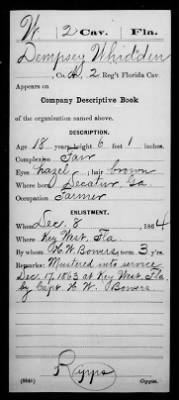 W. 2 Cav. Fla.
Dempsey Whidden
, Co. A, 2 Reg't Florida Cav.
Appears on
Company Descriptive Book
of the organization named above.
DESCRIPTION.
Age 18 years; height 6 feet 1 inches.
Complexion Fair
Eyes hazel; hair brown
Where born Decatur, Ga.
Occupation Farmer
ENLISTMENT.
When Dec. 8, 1864
Where Key West, Fla.
By whom H. W. Bowers; term 3 y'rs.
Remarks: Mustered into service
Dec. 17, 1863 at Key West Fla
by Capt. H. W. Bowers
Copyist.